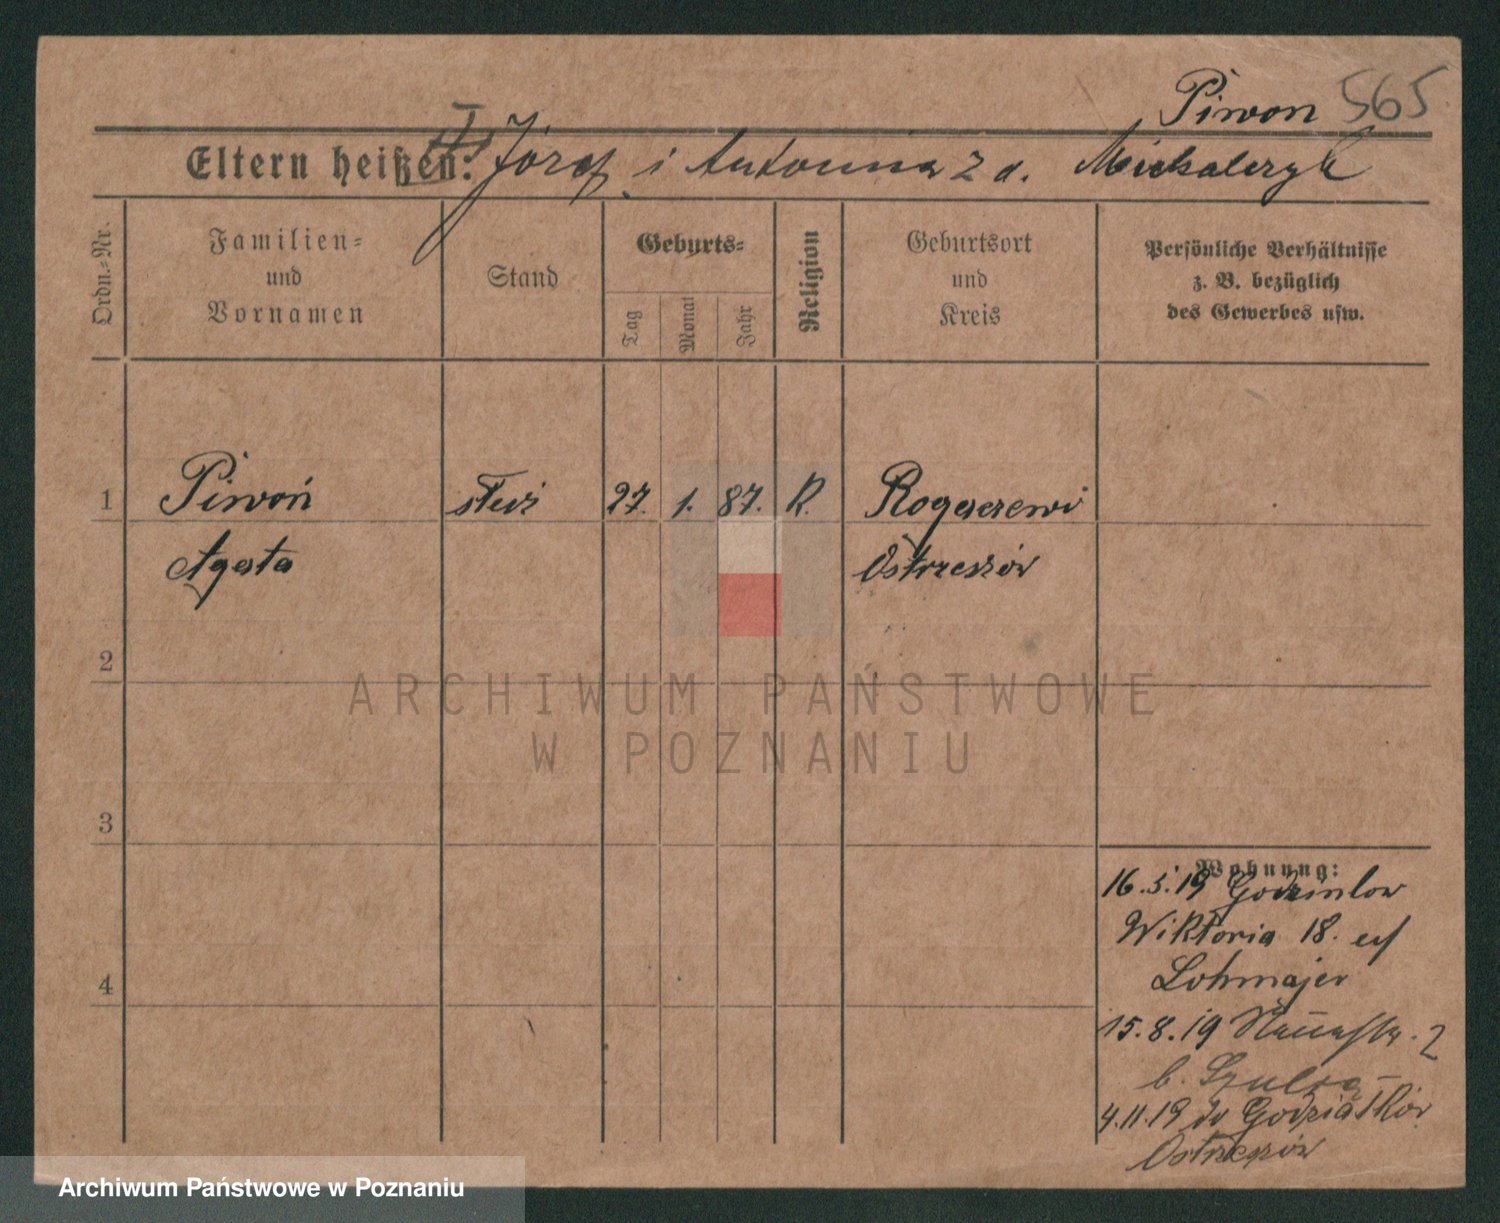 Piwon 565
Eltern heißen: Józef i Antonina z d. Michalczyk
Ordn.-Nr.
Familien-
und
Vornamen
Stand
Geburts-
Tag
Monat
Jahr
Religion
Geburtsort
und
Kreis
Persönliche Verhältnisse
z. B. bezüglich
des Gewerbes usw.
1 Piwoń 27. 1. 87. R.
Agata Ostrzeszów
2
3
4
Wohnung:
16.5.19
Wiktoria 18.
Lohmajer
15.8.19 2
b. Szulca
4.11.19 do
Ostrzeszów
ARCHIWUM PAŃSTWOWE
W POZNANIU
Archiwum Państwowe w Poznaniu